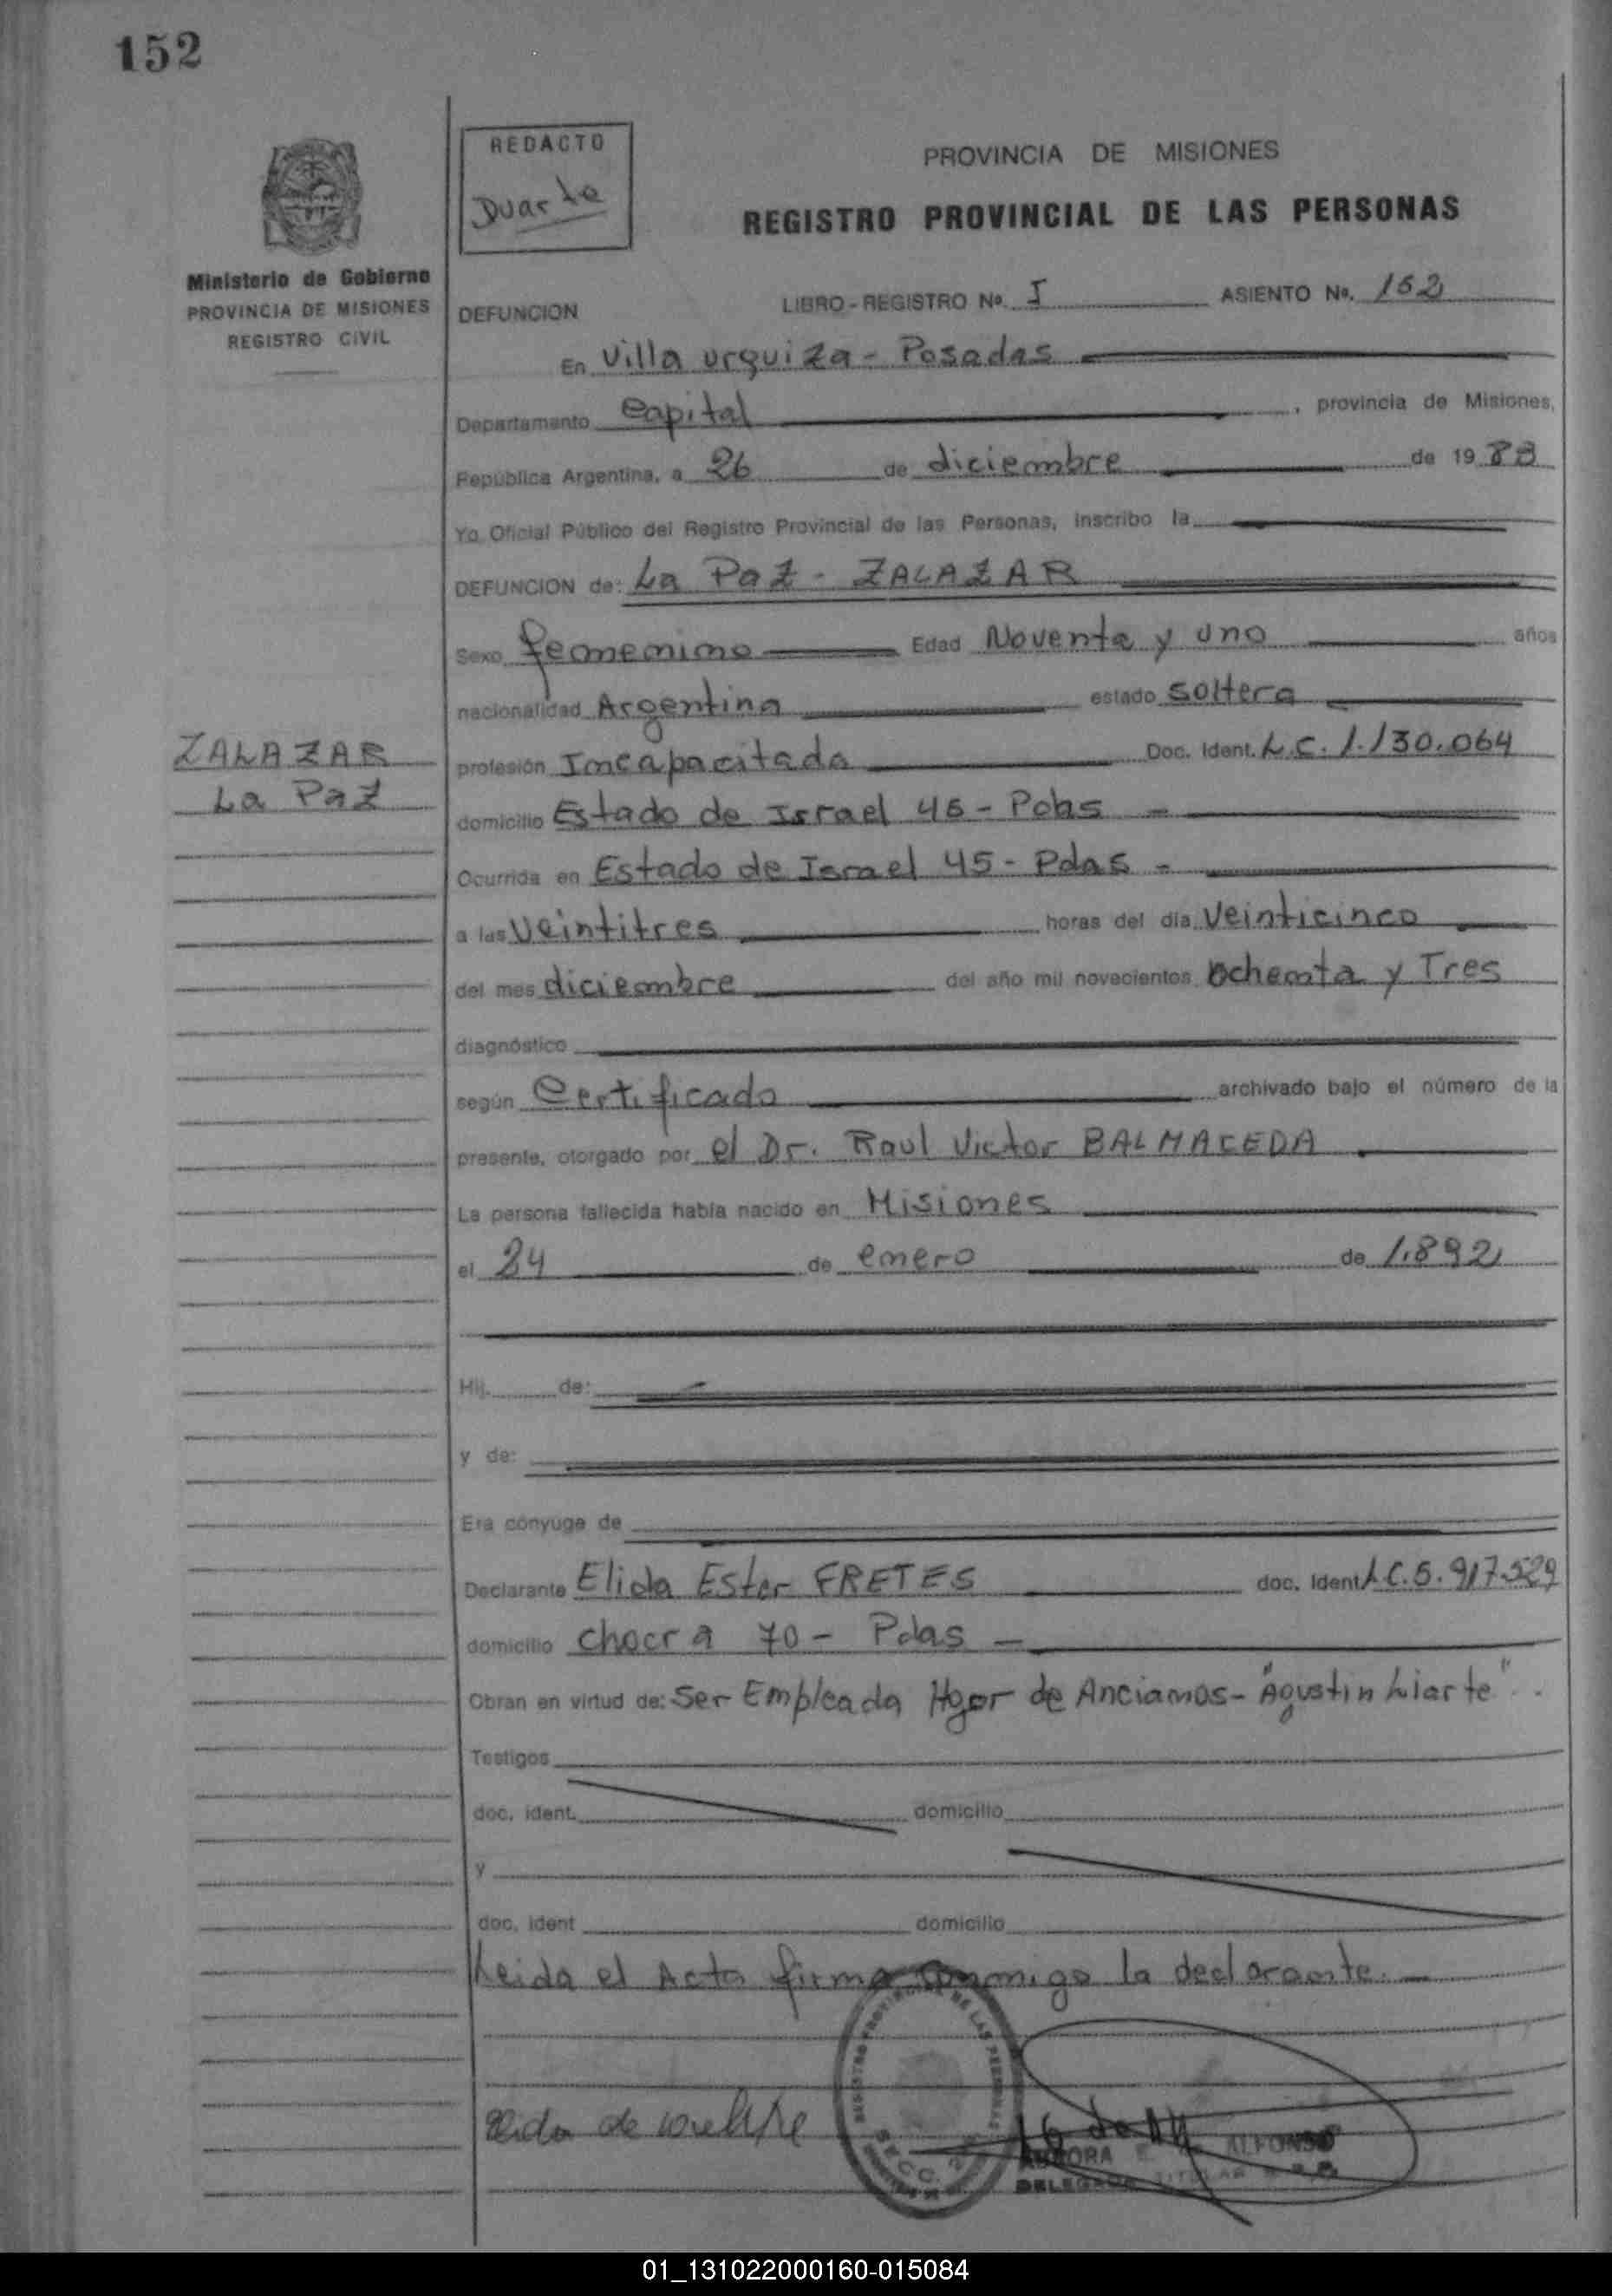 152
REDACTO
Duarte
PROVINCIA DE MISIONES
REGISTRO PROVINCIAL DE LAS PERSONAS
Ministerio de Gobierno
PROVINCIA DE MISIONES
REGISTRO CIVIL
DEFUNCION LIBRO-REGISTRO Nº. I ASIENTO Nº. 152
En Villa urquiza - Posadas
Departamento Capital, provincia de Misiones,
República Argentina, a 26 de diciembre de 1983
Yo Oficial Público del Registro Provincial de las Personas, inscribo la
DEFUNCION de: La Paz - ZALAZAR
Sexo femenino Edad Noventa y uno años
nacionalidad Argentina estado soltera
ZALAZAR
La Paz
profesión Incapacitada Doc. Ident. L.C. 1.130.064
domicilio Estado de Israel 45 - Pdas -
Ocurrida en Estado de Israel 45 - Pdas -
a las Veintitres horas del día Veinticinco
del mes diciembre del año mil novecientos ochenta y Tres
diagnóstico
según Certificado archivado bajo el número de la
presente, otorgado por el Dr. Raul Victor BALMACEDA
La persona fallecida había nacido en Misiones
el 24 de enero de 1.892
Hij de:
y de:
Era cónyuge de
Declarante Elida Ester FRETES doc. Ident L.C. 5.917.529
domicilio chacra 70 - Pdas -
Obran en virtud de: Ser Empleada Hogar de Ancianos - "Agustin Liarte".
Testigos
doc. ident. domicilio
y
doc. ident domicilio
Leida el Acta firma conmigo la declarante. -
REGISTRO PROVINCIAL DE LAS PERSONAS
SECC.
Elida de
AURORA E. ALFONSO
DELEGADA TITULAR
01_131022000160-015084